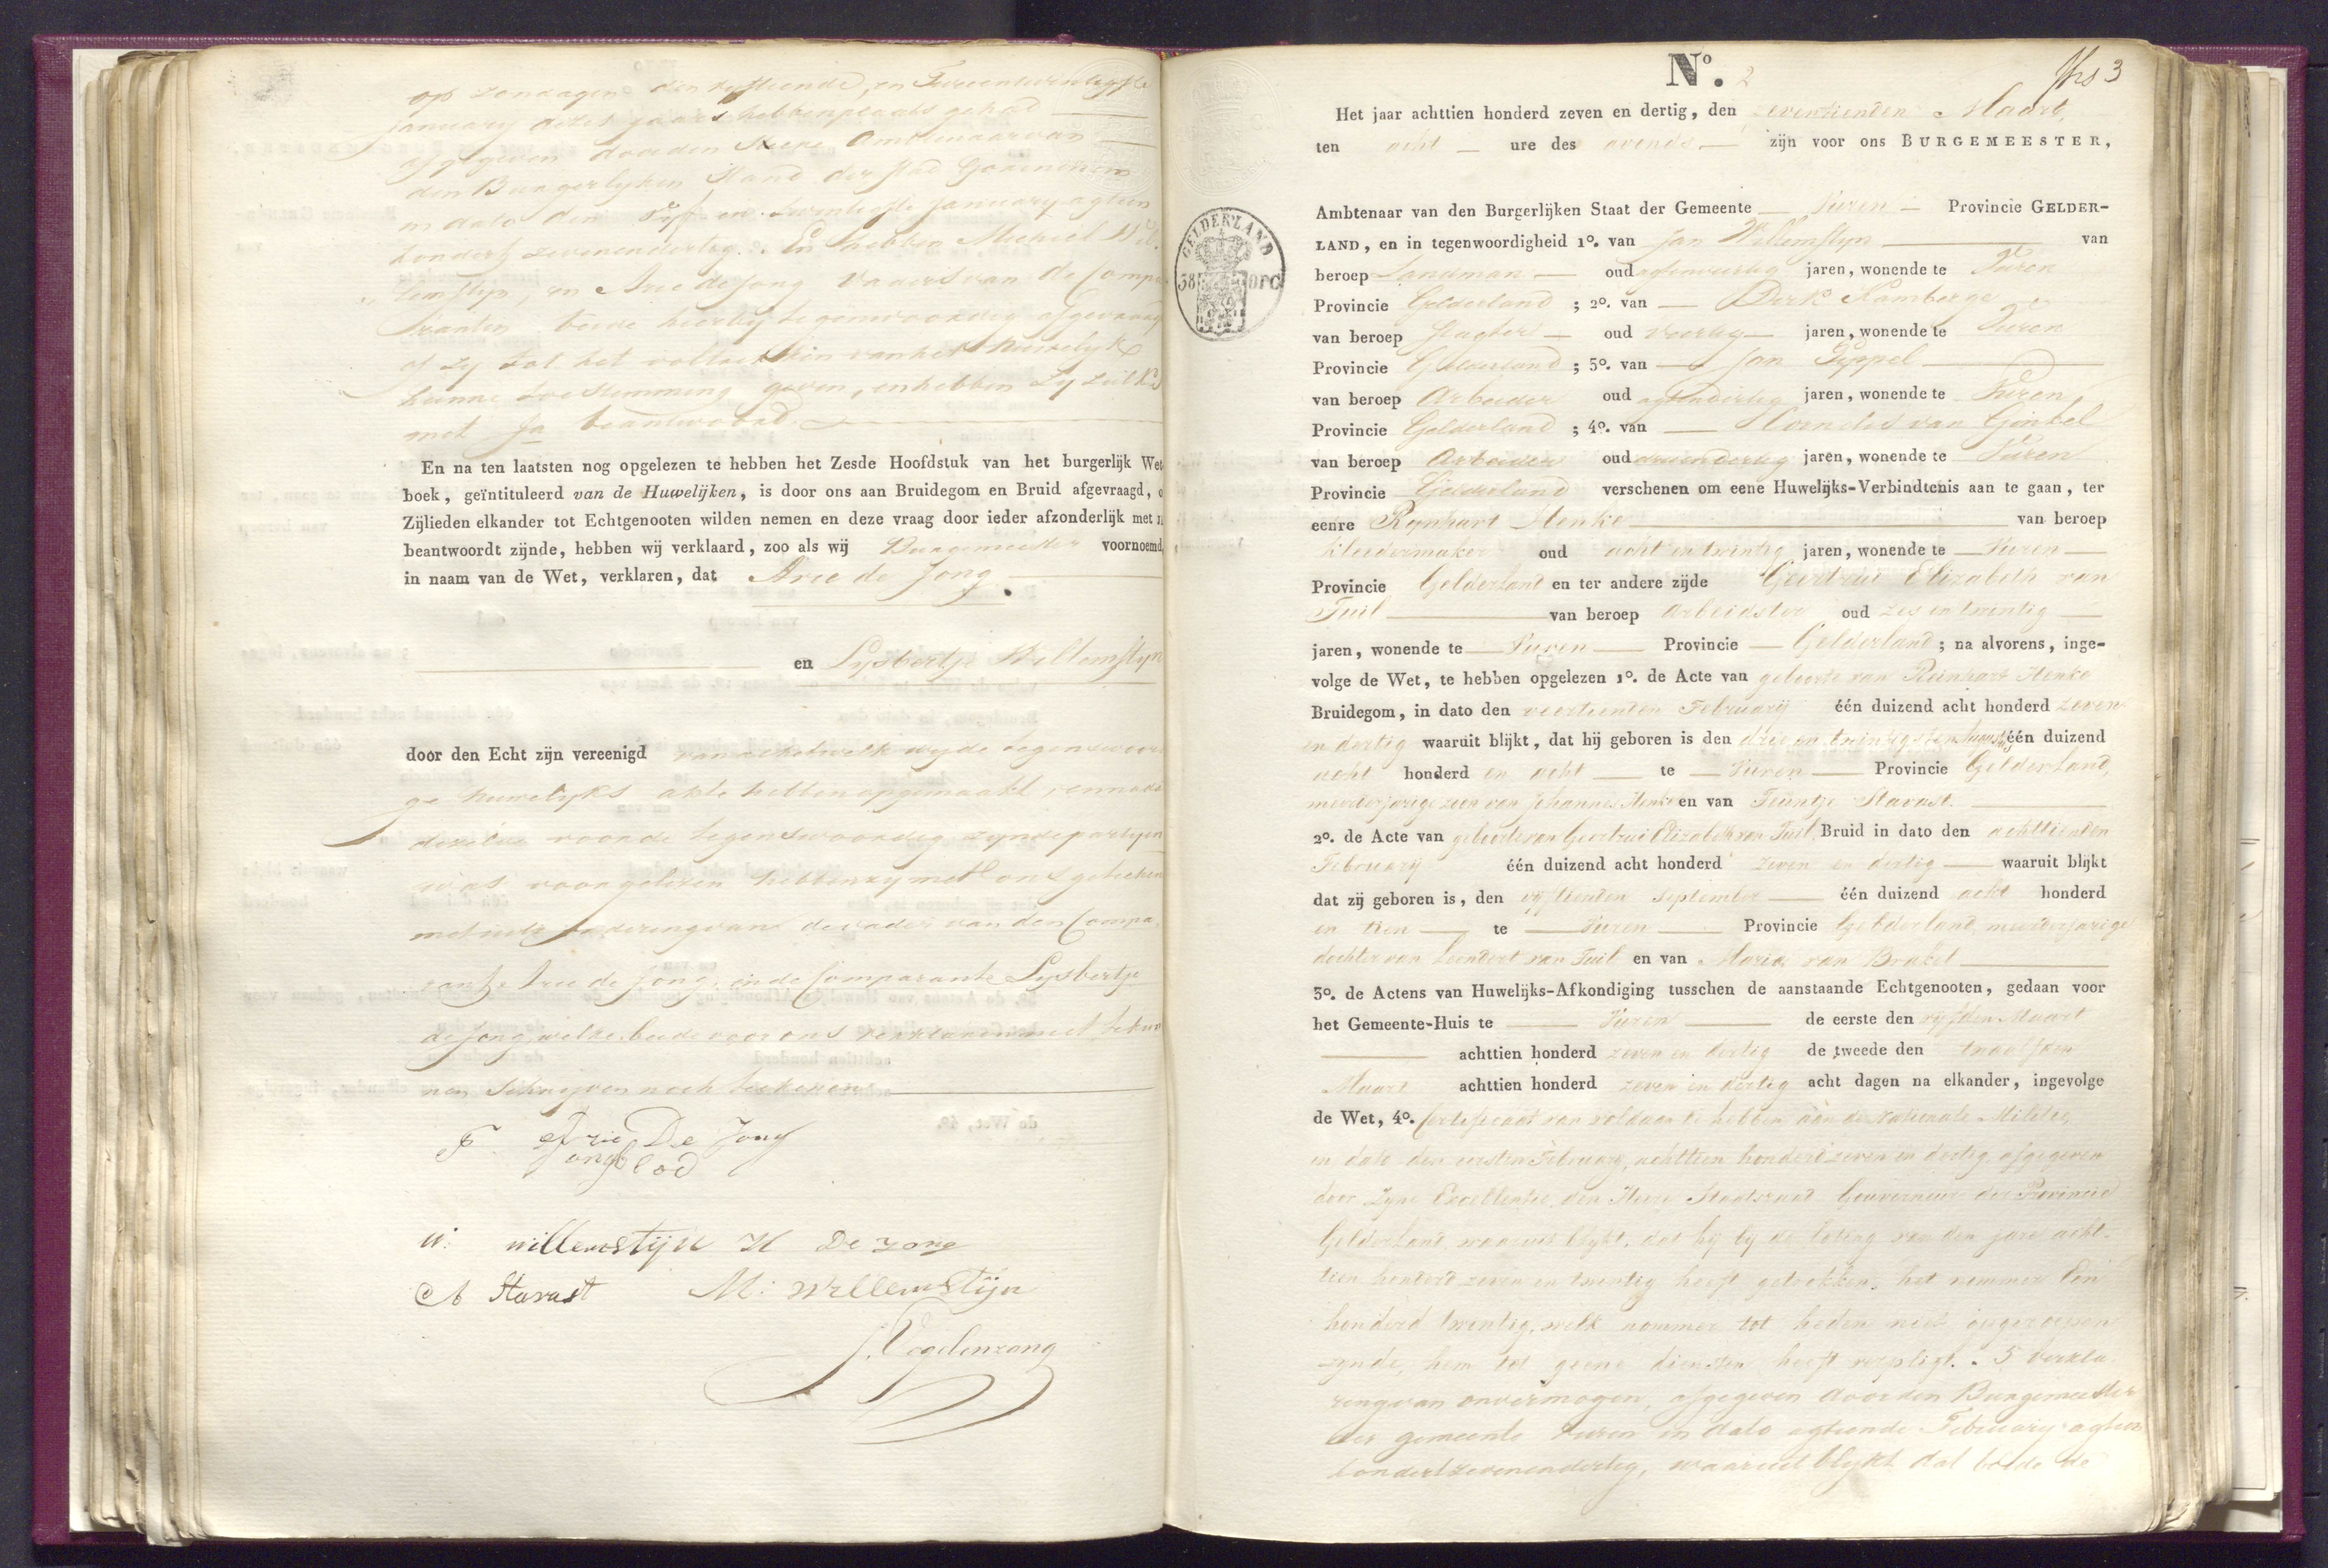 op zondagen den vyftiende, en Tweeentwintigste
January dezes jaars hebben plaats gehad
afgegeven door den Heere Ambtenaar van
den Burgerlyken Stand der Stad Gorinchem
in dato den vyf en twintigste January agtien
honderd zevenendertig. En hebben Michiel Wil-
lemstyn en Arie de Jong Vaders van de Compa-
ranten beide hierby tegenwoordig afgevraagd
of zy tot het voltrekken van het huwelyk
hunne toestemming geven, en hebben zy zulks
met Ja beantwoord.
En na ten laatsten nog opgelezen te hebben het Zesde Hoofdstuk van het burgerlijk Wet-
boek, geïntituleerd van de Huwelijken, is door ons aan Bruidegom en Bruid afgevraagd, o
Zijlieden elkander tot Echtgenooten wilden nemen en deze vraag door ieder afzonderlijk met
beantwoordt zijnde, hebben wij verklaard, zoo als wij Burgemeester voornoemd,
in naam van de Wet, verklaren, dat Arie de Jong
en Lijsbertje Willemstyn
door den Echt zijn vereenigd van al hetwelk wy de tegenswoor
ge huwelyks akte hebben opgemaakt, en na
dezelve voor de tegenswoordig zynde partyen
was voorgelezen hebben zy met ons geteeken
met uitzondering van de vader van den Compa-
rant Arie de Jong, en de Comparante Lijsbertje
de Jong, welke beide voor ons verklaren niet te kun
nen Schryven noch teekenen
F. Arie De Jong
Jongblod
W: willemstijn H De Jong
A Stavast M: Willemstijn
J. Vogelenzang
No. 2
3
Het jaar achttien honderd zeven en dertig, den zeventienden Maart,
ten acht ure des avonds zijn voor ons BURGEMEESTER,
Ambtenaar van den Burgerlijken Staat der Gemeente Vuren Provincie GELDER-
LAND, en in tegenwoordigheid 1o. van Jan Willemstyn van
beroep Landman oud jaren, wonende te Vuren
Provincie Gelderland ; 2o. van Dirk Kamberge
van beroep Slagter oud veertig jaren, wonende te Vuren
Provincie Gelderland ; 3o. van Jan Peppel
van beroep Arbeider oud agtendertig jaren, wonende te Vuren
Provincie Gelderland ; 4o. van Cornelis van Ginkel
van beroep Arbeider oud drieendertig jaren, wonende te Vuren
Provincie Gelderland verschenen om eene Huwelijks-Verbindtenis aan te gaan, ter
eenre Rynhart Henke van beroep
kleedermaker oud acht en twintig jaren, wonende te Vuren
Provincie Gelderland en ter andere zijde Geertrui Elizabeth van
Tuil van beroep Arbeidster oud zes en twintig
jaren, wonende te Vuren Provincie Gelderland; na alvorens, inge-
volge de Wet, te hebben opgelezen 1o. de Acte van geboorte van Reinhart Henke
Bruidegom, in dato den veertienden Februarij één duizend acht honderd zeven
en dertig waaruit blijkt, dat hij geboren is den drie en twintigsten één duizend
acht honderd en acht te Vuren Provincie Gelderland,
meerderjarige zoon van Johannes Henke en van Teuntje Stavast.
2o. de Acte van geboorte van Geertrui Elizabeth van Tuil, Bruid in dato den achttienden
Februarij één duizend acht honderd zeven en dertig waaruit blijkt
dat zij geboren is, den vijftienden september één duizend acht honderd
en tien te Vuren Provincie Gelderland, meerderjarige
dochter van Leendert van Tuil en van Maria van Brakel
3o. de Actens van Huwelijks-Afkondiging tusschen de aanstaande Echtgenooten, gedaan voor
het Gemeente-Huis te Vuren de eerste den vijfden Maart
achttien honderd zeven en dertig de tweede den twaalfden
Maart achttien honderd zeven en dertig acht dagen na elkander, ingevolge
de Wet, 4o. Certificaat van voldaan te hebben aan de Nationale Militie,
in dato den eersten February, achttien honderd zeven en dertig, afgegeven
door Zyne Excellentie den Heere Staatsraad Gouverneur der Provincie
Gelderland, waaruit blykt, dat hij bij de loting van den jare acht-
tien honderd zeven en twintig heeft getrokken, het nommer Een
honderd twintig, welk nommer tot heden niet opgeroepen
zynde, hem tot geene diensten heeft verpligt. 5 Verkla-
ring van onvermogen, afgegeven door den Burgemeester
der gemeente Vuren in dato agtiende February agtien
hondertzevenendertig, waaruit blykt dat beide de
GELDERLAND
38